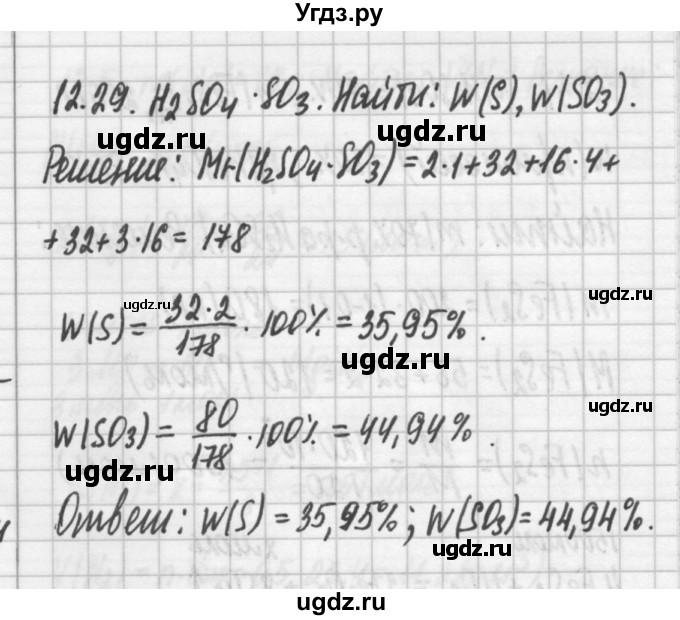 Угдз.ру
12.29. H₂SO₄ · SO₃. Найти: W(S), W(SO₃).
ugdz.ru ugdz.ru
Решение: Mr(H₂SO₄ · SO₃) = 2·1+32+16·4+
ugdz.ru
+32+3·16 = 178
ugdz.ru
W(S) = 32·2/178 · 100% = 35,95%.
ugdz.ru ugdz.ru
ugdz.ru
W(SO₃) = 80/178 · 100% = 44,94%.
ugdz.ru
Ответ: W(S) = 35,95%; W(SO₃) = 44,94%.
ugdz.ru
ugdz.ru